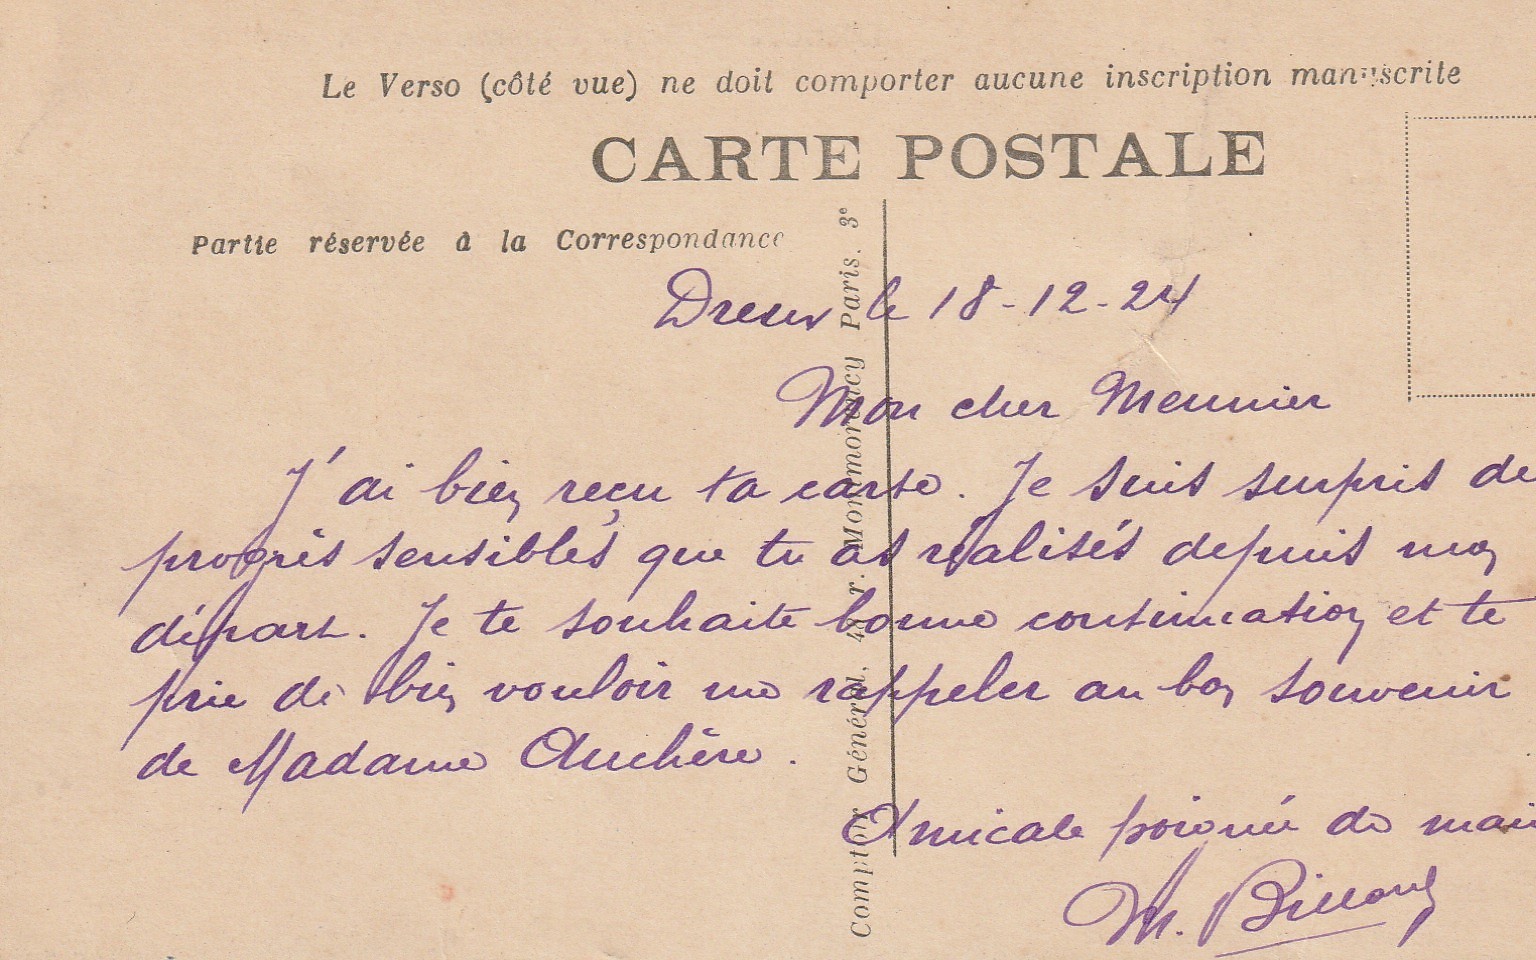 Le Verso (côté vue) ne doit comporter aucune inscription manuscrite
CARTE POSTALE
Partie réservée à la Correspondance
Comptoir Général, r. Montmorency Paris. 3e
Dreux le 18-12-24
Mon cher Meunier
J'ai bien reçu ta carte. Je suis surpris de
progrès sensibles que tu as réalisés depuis mon
départ. Je te souhaite bonne continuation et te
prie de bien vouloir me rappeler au bon souvenir
de Madame Auchère.
Amicale poignée de main
M.